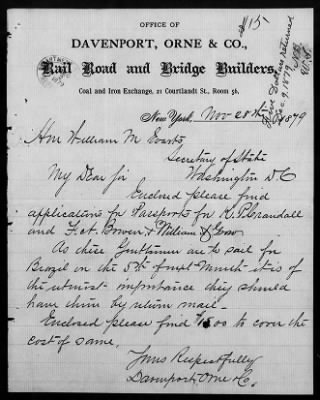 OFFICE OF
$15
DAVENPORT, ORNE & CO.,
Rail Road and Bridge Builders,
Coal and Iron Exchange, 21 Courtlandt St., Room 56.
Five Dollars returned
Dec 9, 1879
New York, Nov 28th 1879
Hon William M Evarts
Secretary of State
My Dear Sir Washington D C
Enclosed please find
applications for Passports for R. P. Crandall
and F. A. Bowen & William Snow
As these Gentlemen are to sail for
Brazil on the 5th of next Month it is of
the utmost importance they should
have them by return mail.
Enclosed please find $15.00 to cover the
cost of same.
Yours Respectfully
Davenport, Orne & Co.